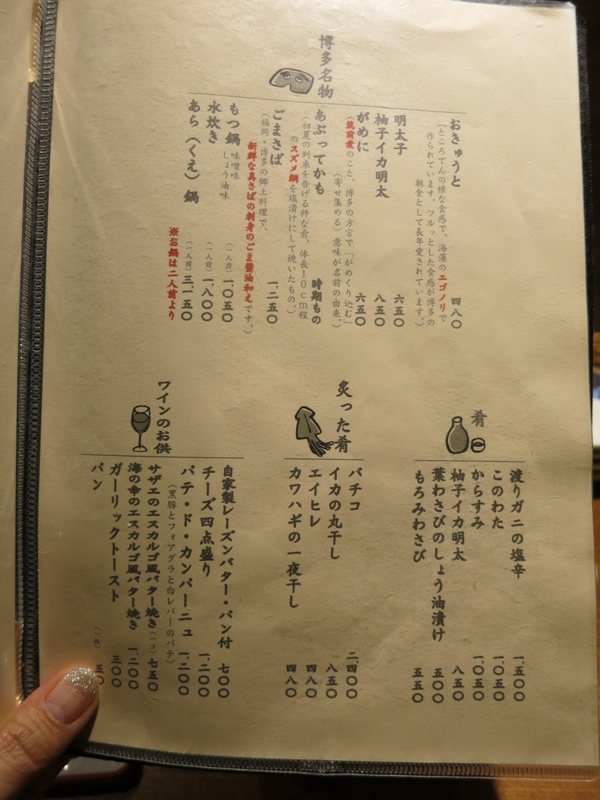 博多名物
おきゅうと 四八〇
(ところてんの様な食感で、海藻のエゴノリで
作られています。ツルッとした食感が博多の
朝食として長年愛されています。)
明太子 六五〇
柚子イカ明太 八五〇
がめに 六五〇
(筑前煮のこと、博多の方言で「がめくり込む」
(寄せ集める)意味が名前の由来。)
あぶってかも 時期もの
(初夏の到来を告げる粋な肴、体長10cm程
のスズメ鯛を塩漬けにして焼いたもの。)
ごまさば 一、二五〇
(福岡・博多の郷土料理で、
新鮮な真さばの刺身のごま醤油和えです。)
もつ鍋 味噌味 しょう油味 (一人前) 一、〇五〇
水炊き (一人前) 一、八〇〇
あら(くえ)鍋 (一人前) 三、一五〇
※お鍋は二人前より
肴
渡りガニの塩辛 一、五〇〇
このわた 一、〇五〇
からすみ 一、〇五〇
柚子イカ明太 八五〇
葉わさびのしょう油漬け 五〇〇
もろみわさび 五五〇
炙った肴
バチコ 二、四〇〇
イカの丸干し 八五〇
エイヒレ 四八〇
カワハギの一夜干し 四八〇
ワインのお供
自家製レーズンバター・パン付 七〇〇
チーズ四点盛り 一、二〇〇
パテ・ド・カンパーニュ 一、二〇〇
(黒豚とフォアグラと白レバーのパテ)
サザエのエスカルゴ風バター焼き(一コ) 七五〇
海の幸のエスカルゴ風バター焼き 一、二〇〇
ガーリックトースト 三〇〇
パン (一枚) 五〇